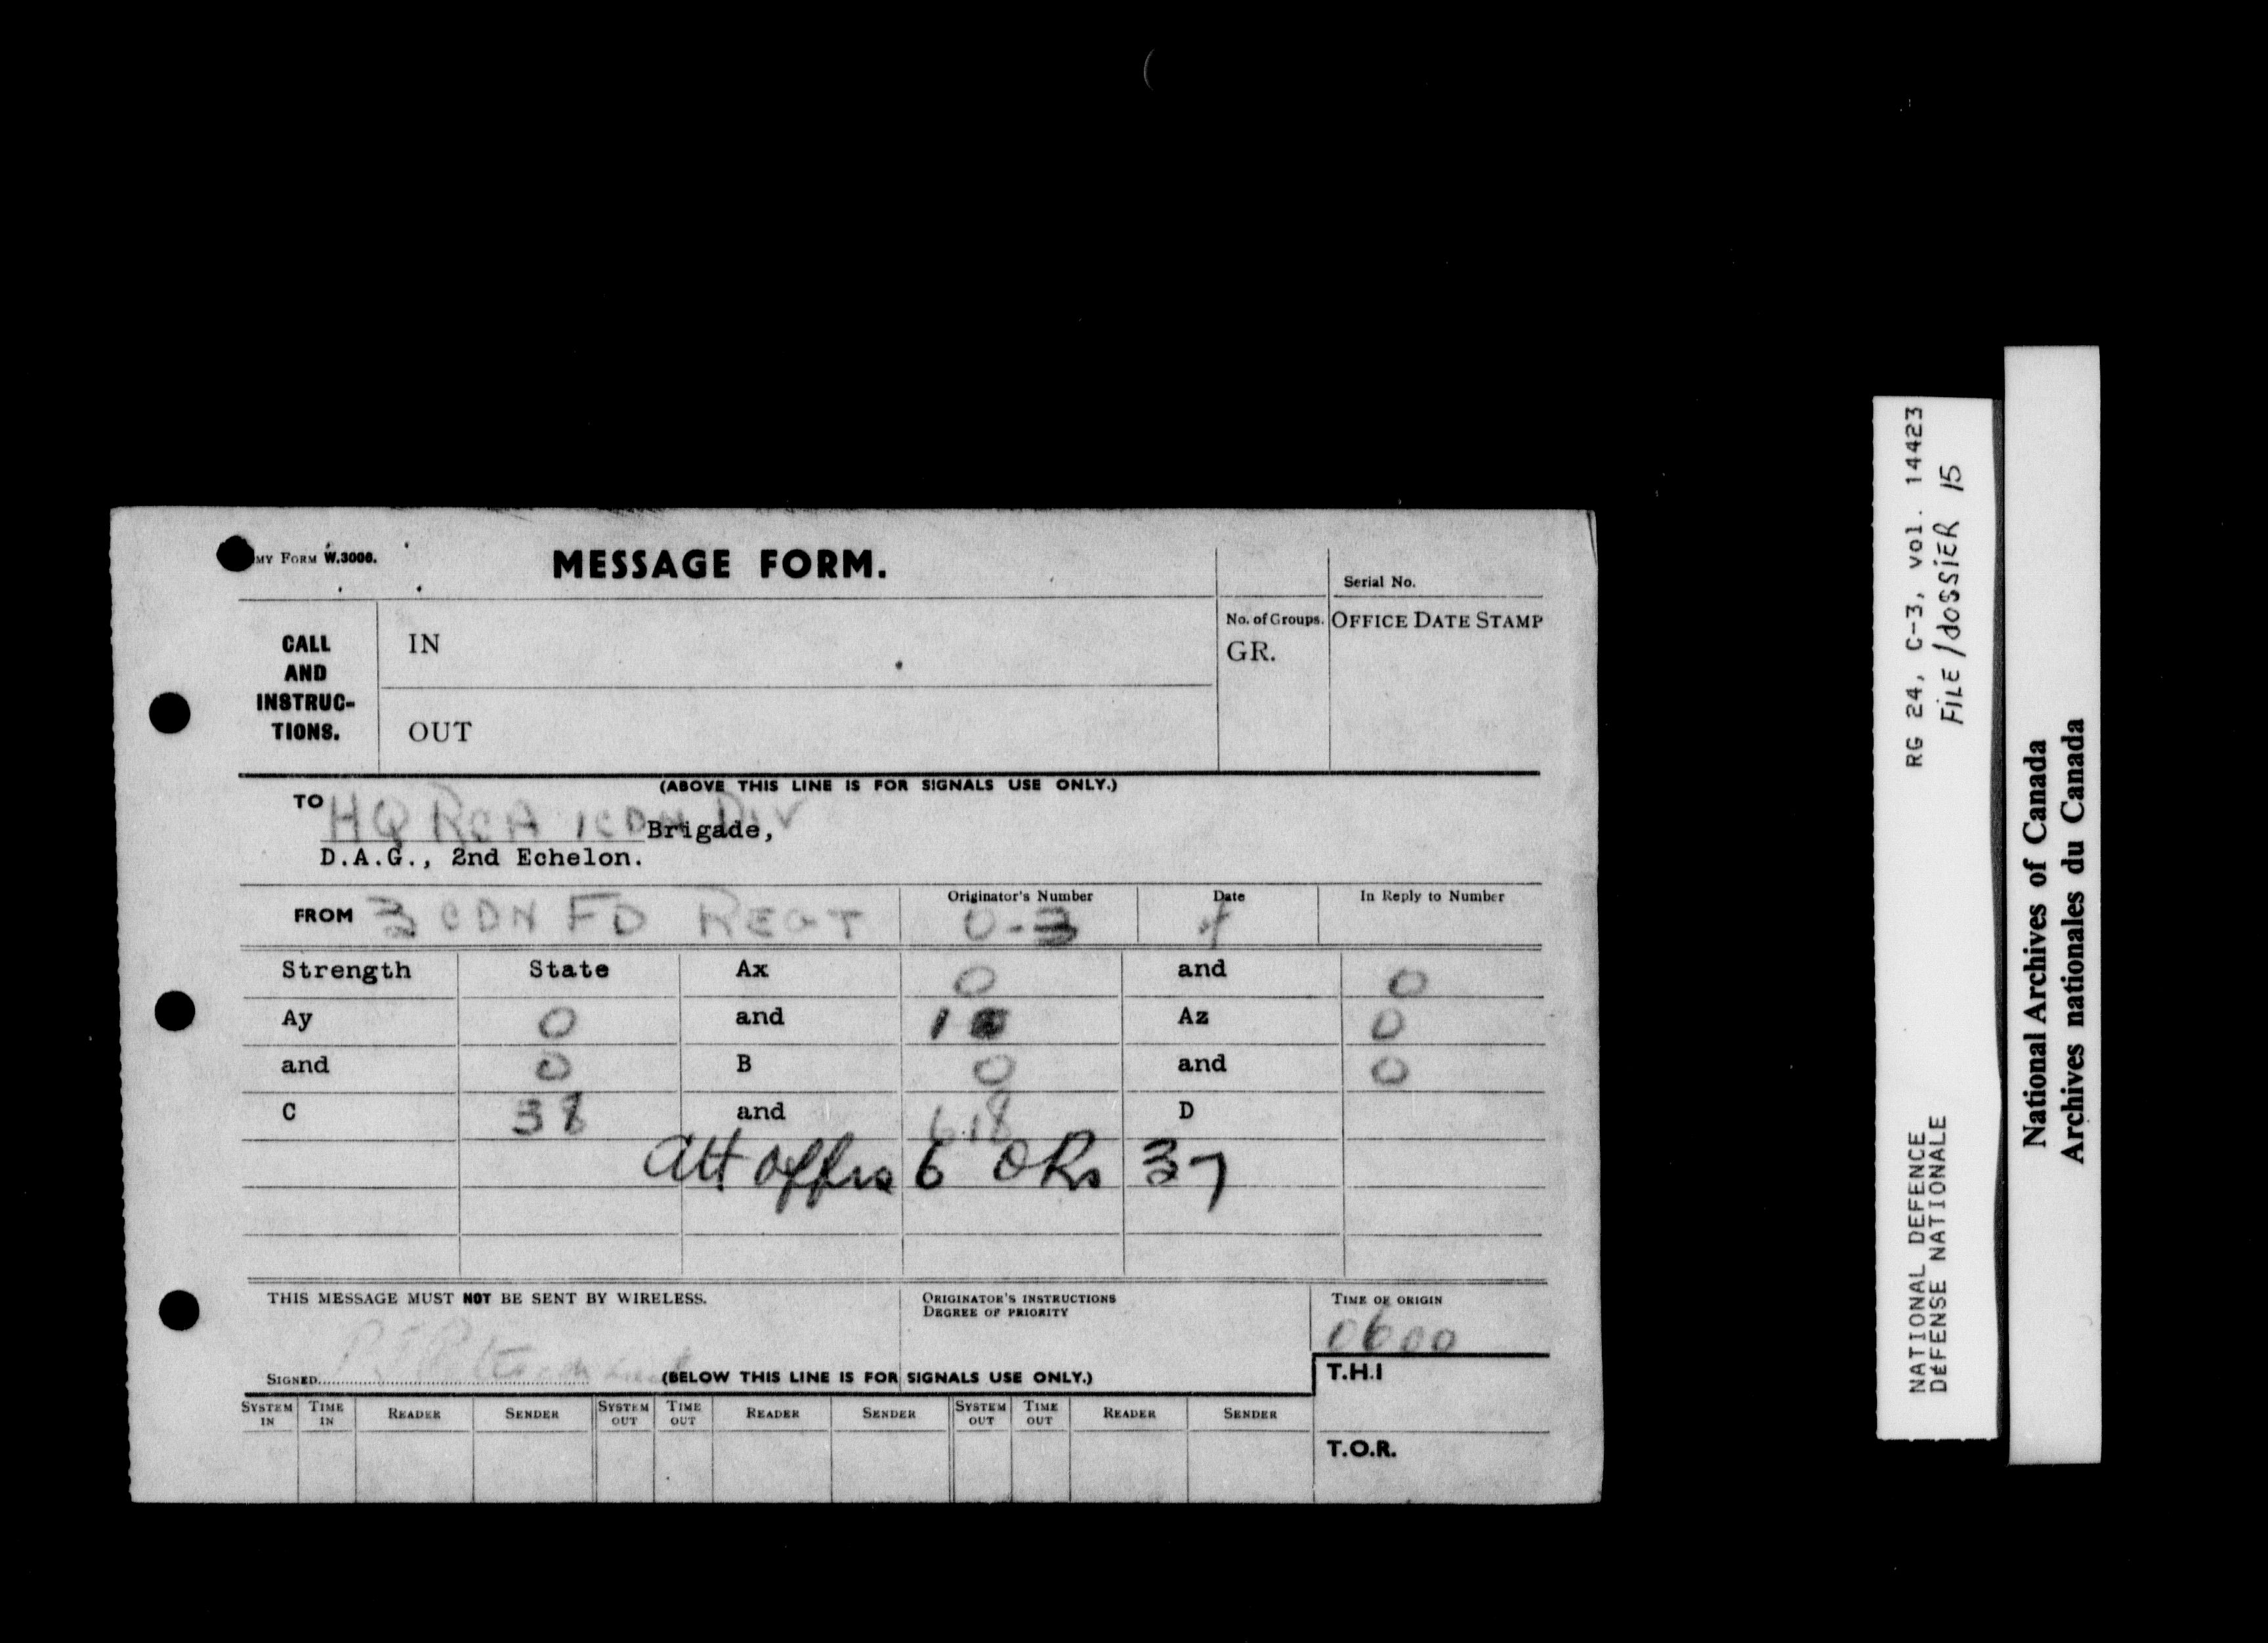 MY FORM W.3006.
MESSAGE FORM.
Serial No.
CALL AND INSTRUC-TIONS.
IN
No. of Groups.
GR.
OFFICE DATE STAMP
OUT
(ABOVE THIS LINE IS FOR SIGNALS USE ONLY.)
TO HQ RCA 1 CDN DIV
Brigade,
D.A.G., 2nd Echelon.
FROM 3 CDN FD REGT
Originator's Number
O-3
Date
In Reply to Number
Strength State Ax 0 and 0
Ay 0 and 1 Az 0
and 0 B 0 and 0
C 38 and 618 D
Att offrs 6 ORs 37
THIS MESSAGE MUST NOT BE SENT BY WIRELESS.
ORIGINATOR'S INSTRUCTIONS
DEGREE OF PRIORITY
TIME OF ORIGIN
0600
SIGNED
(BELOW THIS LINE IS FOR SIGNALS USE ONLY.)
T.H.I
SYSTEM IN TIME IN READER SENDER SYSTEM OUT TIME OUT READER SENDER SYSTEM OUT TIME OUT READER SENDER
T.O.R.
NATIONAL DEFENCE RG 24, C-3, vol. 14423
DÉFENSE NATIONALE FILE/dOSSIER 15
National Archives of Canada
Archives nationales du Canada